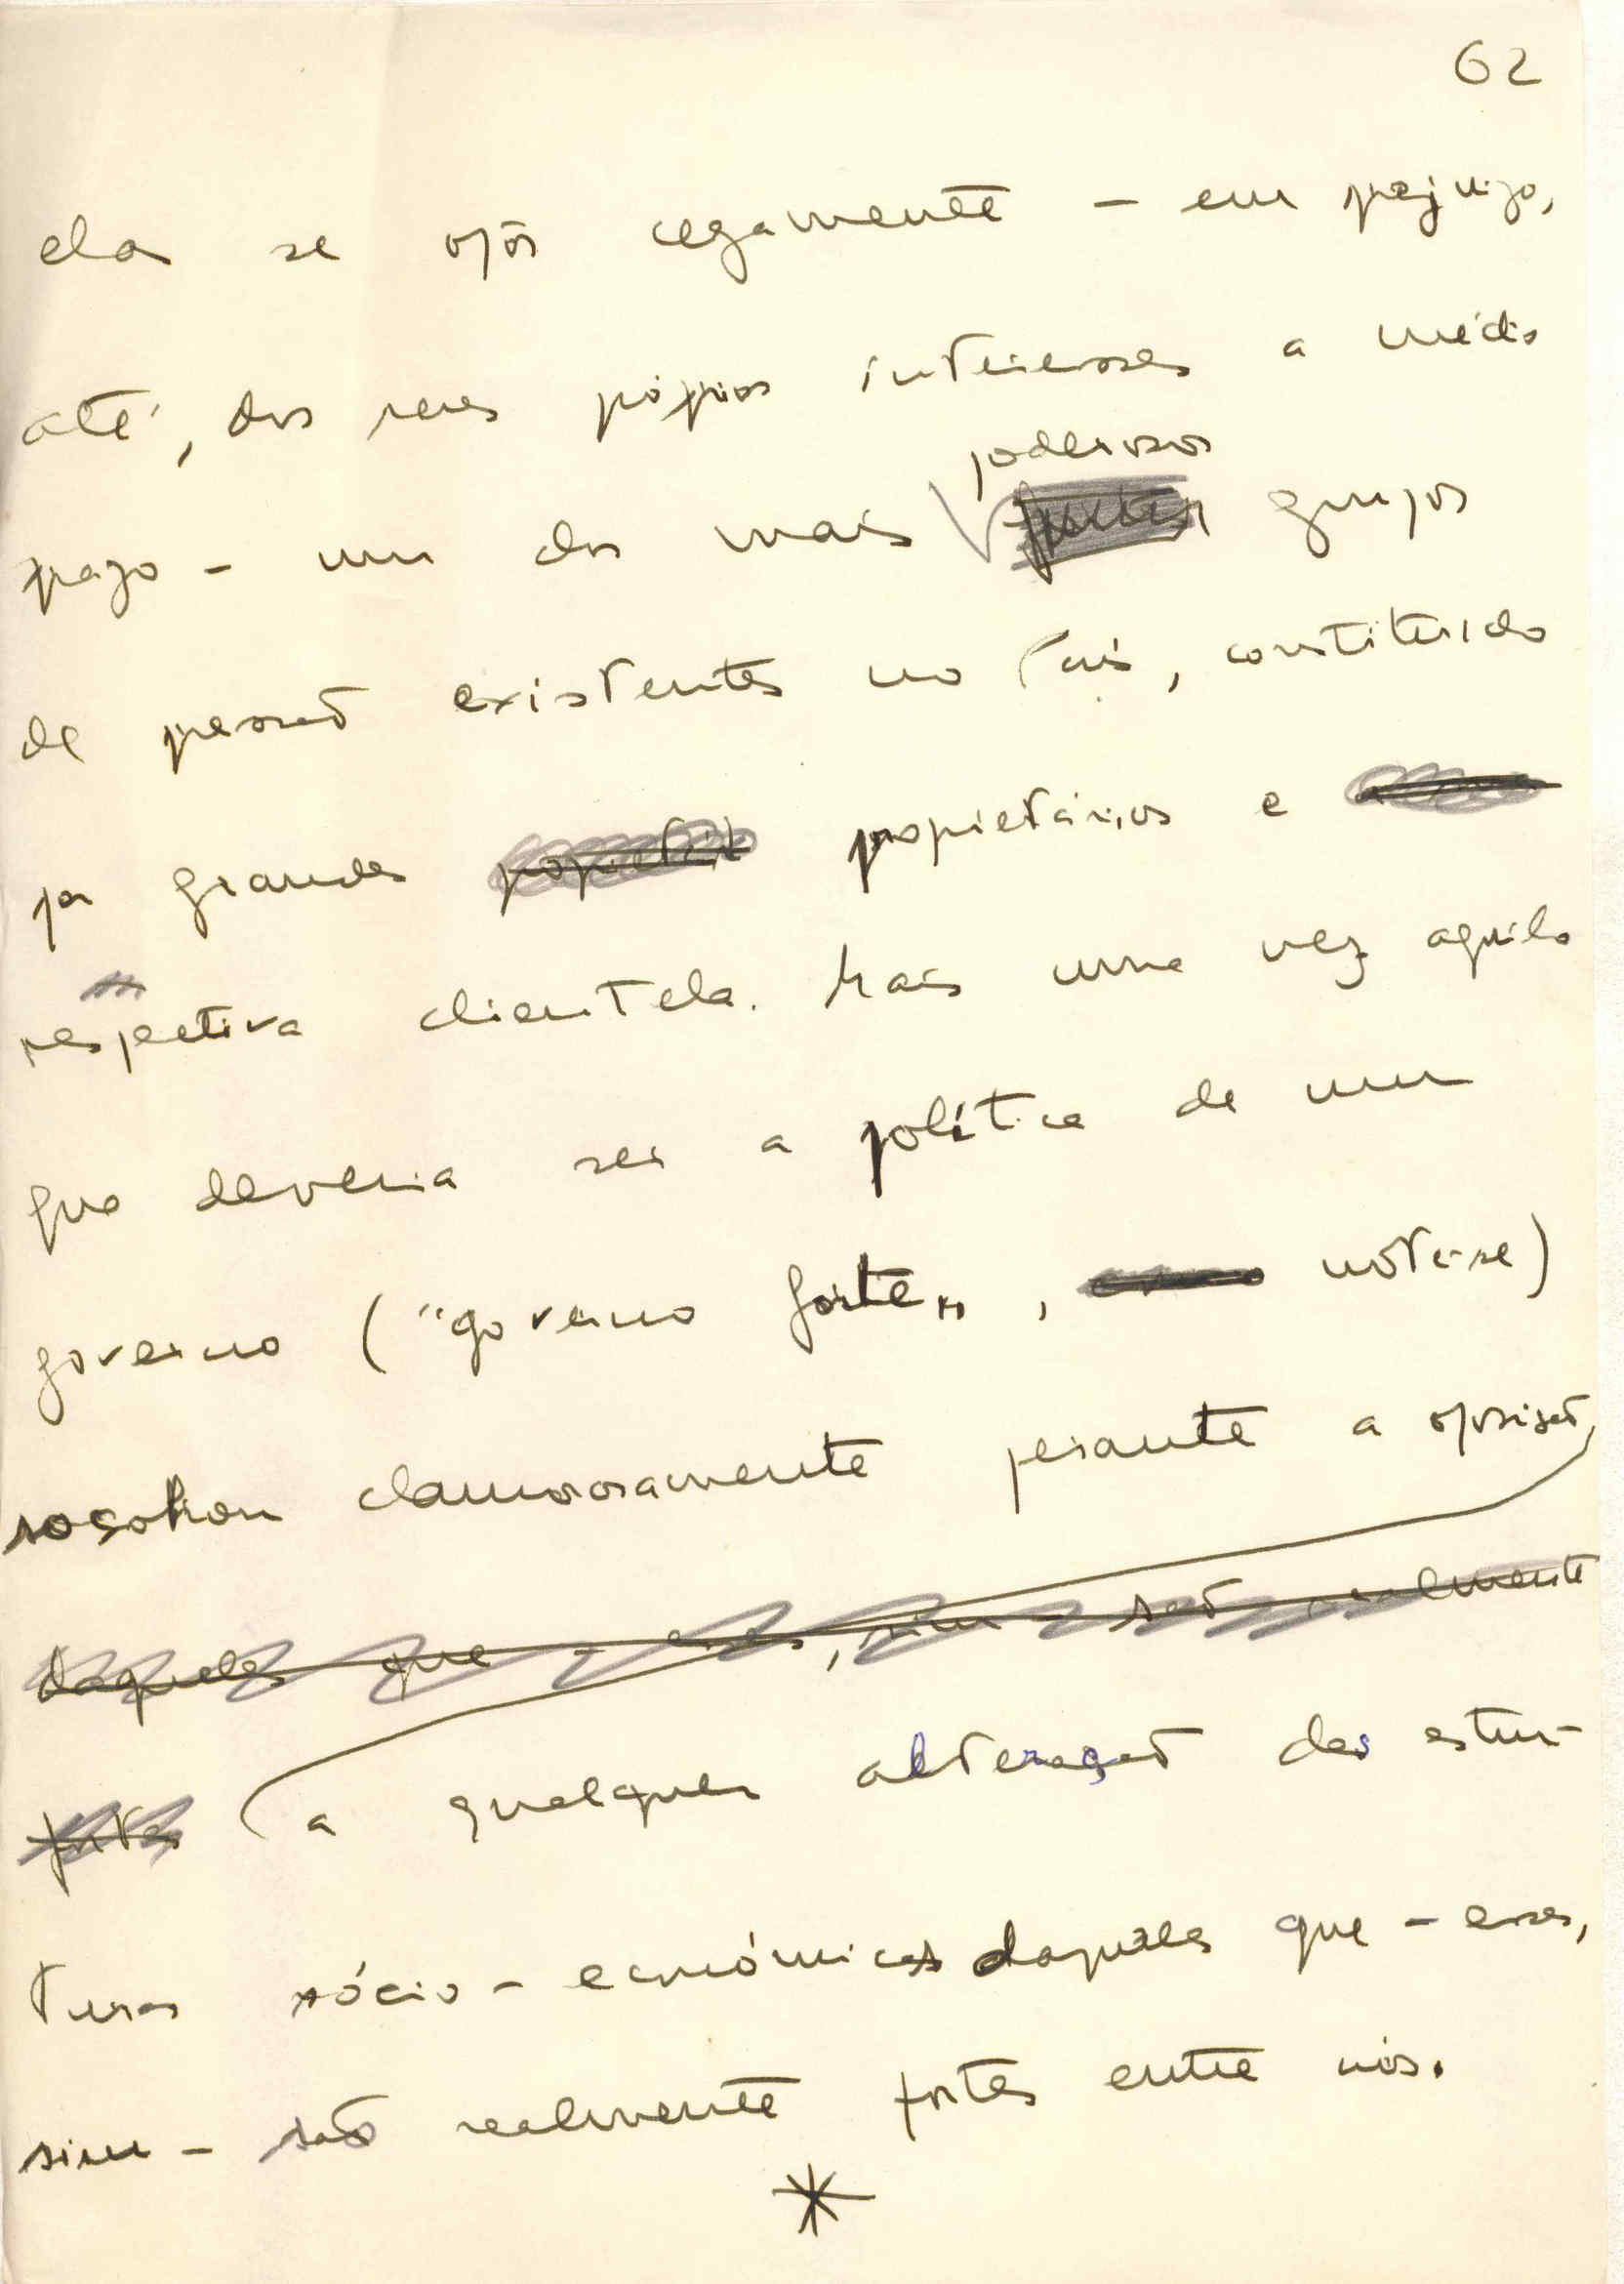 62
ela se opôs cegamente – em prejuízo,
até, dos seus próprios interesses a médio
poderosos
prazo – um dos mais fortes grupos
de pressão existentes no País, constituído
por grandes proprietários e
respectiva clientela. Mais uma vez aquilo
que deveria ser a política de um
governo ("governo forte", note-se)
soçobrou clamorosamente perante a oposição
daqueles que – esses, sim – são realmente
fortes a qualquer alteração das estru-
turas sócio-económicas daqueles que – esses,
sim – são realmente fortes entre nós.
*